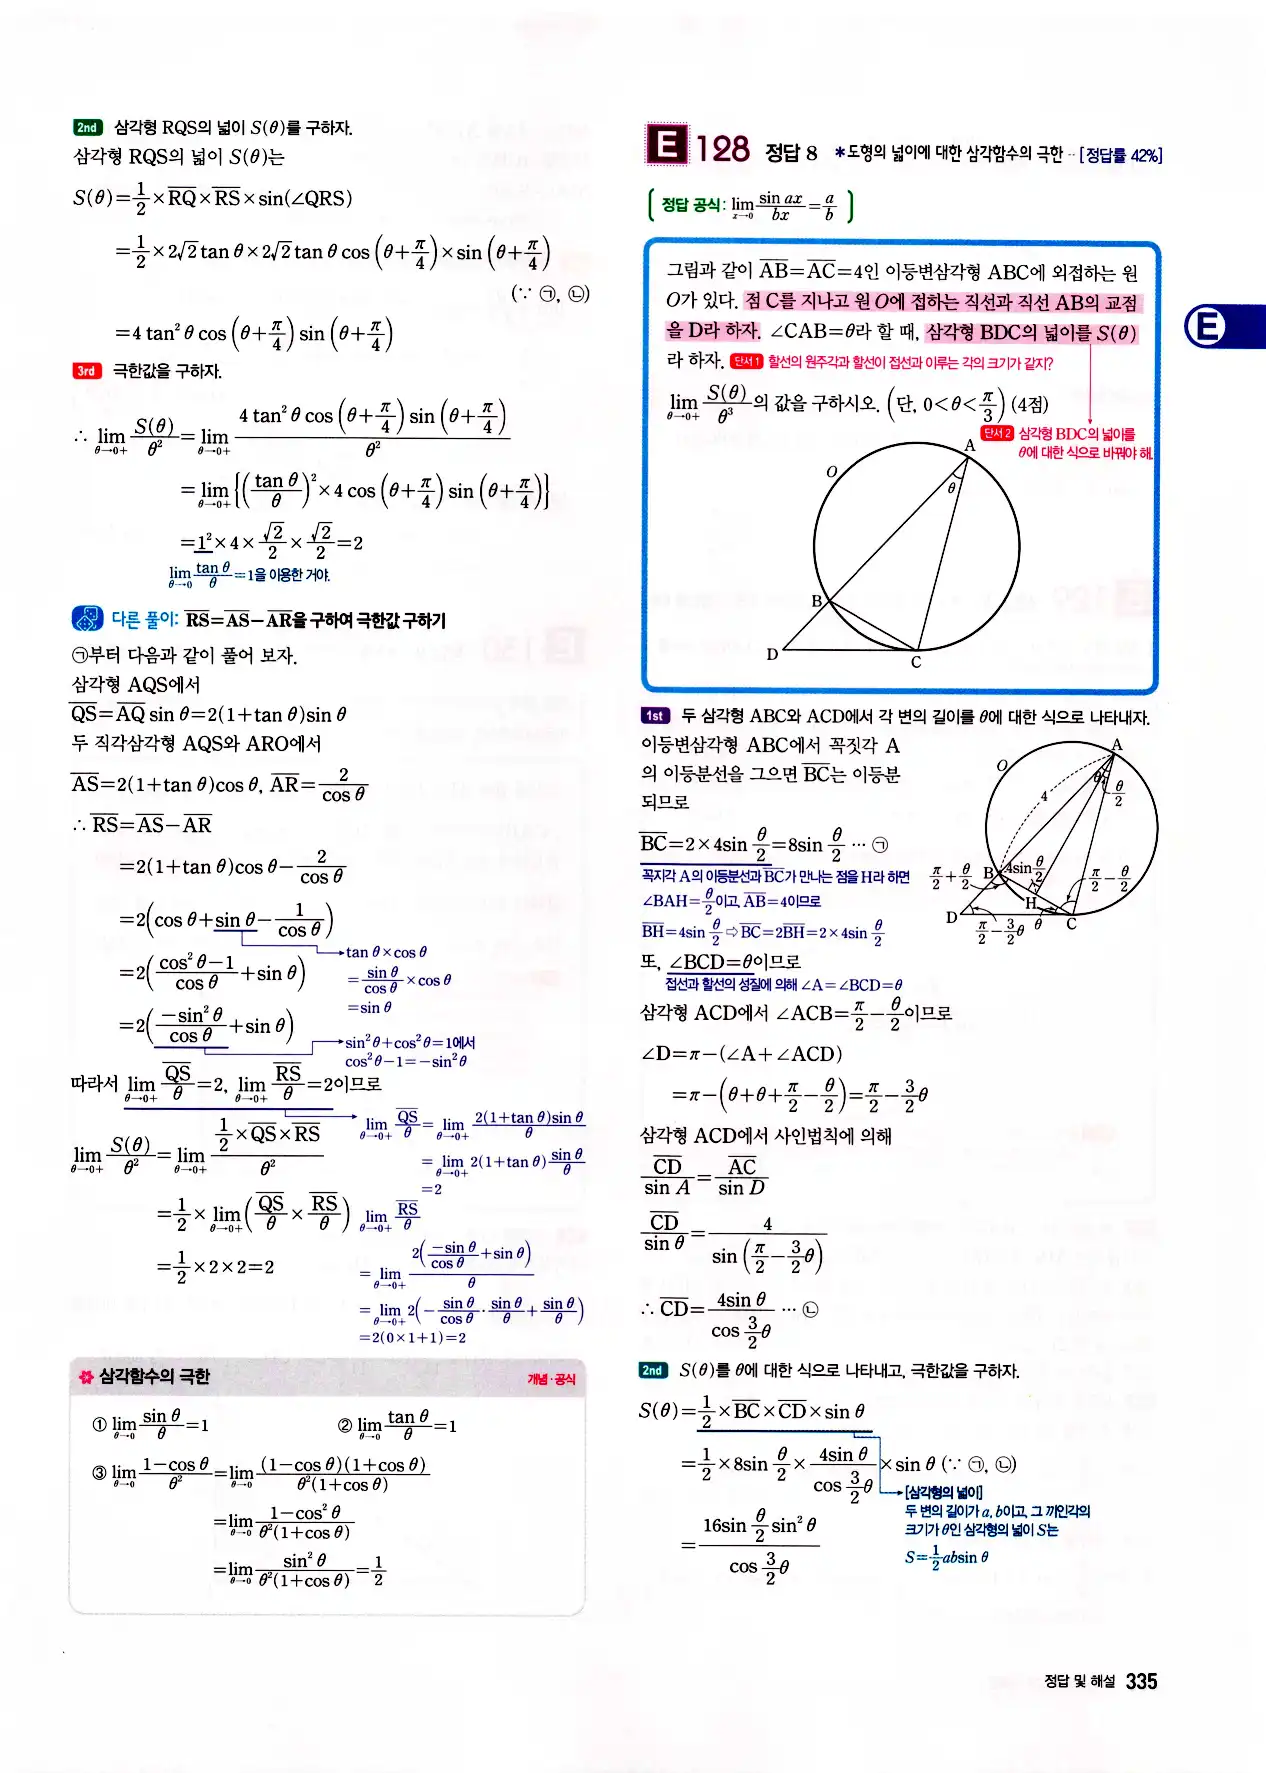 2nd 삼각형 RQS의 넓이 S(θ)를 구하자.
삼각형 RQS의 넓이 S(θ)는
S(θ)=1/2×RQ×RS×sin(∠QRS)
=1/2×2√2 tan θ×2√2 tan θ cos(θ+π/4)×sin(θ+π/4)
(∵ ㉠, ㉡)
=4 tan²θ cos(θ+π/4) sin(θ+π/4)
3rd 극한값을 구하자.
∴ lim_{θ→0+} S(θ)/θ² = lim_{θ→0+} 4 tan²θ cos(θ+π/4) sin(θ+π/4)/θ²
= lim_{θ→0+} {(tan θ/θ)²×4 cos(θ+π/4) sin(θ+π/4)}
=1²×4×√2/2×√2/2=2
lim_{θ→0} tan θ/θ=1을 이용한 거야.
다른 풀이: RS=AS−AR를 구하여 극한값 구하기
㉠부터 다음과 같이 풀어 보자.
삼각형 AQS에서
QS=AQ sin θ=2(1+tan θ)sin θ
두 직각삼각형 AQS와 ARO에서
AS=2(1+tan θ)cos θ, AR=2/cos θ
∴ RS=AS−AR
=2(1+tan θ)cos θ−2/cos θ
=2(cos θ+sin θ−1/cos θ)
tan θ×cos θ
=sin θ/cos θ×cos θ
=sin θ
=2((cos²θ−1)/cos θ+sin θ)
=2(−sin²θ/cos θ+sin θ)
sin²θ+cos²θ=1에서
cos²θ−1=−sin²θ
따라서 lim_{θ→0+} QS/θ=2, lim_{θ→0+} RS/θ=2이므로
lim_{θ→0+} QS/θ= lim_{θ→0+} 2(1+tan θ)sin θ/θ
= lim_{θ→0+} 2(1+tan θ)·sin θ/θ
=2
lim_{θ→0+} S(θ)/θ²= lim_{θ→0+} (1/2×QS×RS)/θ²
=1/2× lim_{θ→0+}(QS/θ×RS/θ)
=1/2×2×2=2
lim_{θ→0+} RS/θ
= lim_{θ→0+} 2(−sin θ/cos θ+sin θ)/θ
= lim_{θ→0+} 2(−sin θ/cos θ·sin θ/θ+sin θ/θ)
=2(0×1+1)=2
삼각함수의 극한 개념·공식
① lim_{θ→0} sin θ/θ=1 ② lim_{θ→0} tan θ/θ=1
③ lim_{θ→0} (1−cos θ)/θ²=lim_{θ→0} (1−cos θ)(1+cos θ)/θ²(1+cos θ)
=lim_{θ→0} (1−cos²θ)/θ²(1+cos θ)
=lim_{θ→0} sin²θ/θ²(1+cos θ)=1/2
E 128 정답 8 *도형의 넓이에 대한 삼각함수의 극한 ·· [정답률 42%]
(정답 공식: lim_{x→0} sin ax/bx=a/b)
그림과 같이 AB=AC=4인 이등변삼각형 ABC에 외접하는 원
O가 있다. 점 C를 지나고 원 O에 접하는 직선과 직선 AB의 교점
을 D라 하자. ∠CAB=θ라 할 때, 삼각형 BDC의 넓이를 S(θ)
라 하자. 단서1 할선의 원주각과 할선이 접선과 이루는 각의 크기가 같지?
lim_{θ→0+} S(θ)/θ³의 값을 구하시오. (단, 0<θ<π/3) (4점)
단서2 삼각형 BDC의 넓이를
θ에 대한 식으로 바꿔야 해.
A
O
θ
B
D
C
E
1st 두 삼각형 ABC와 ACD에서 각 변의 길이를 θ에 대한 식으로 나타내자.
이등변삼각형 ABC에서 꼭짓각 A
의 이등분선을 그으면 BC는 이등분
되므로
BC=2×4sin θ/2=8sin θ/2 ··· ㉠
꼭지각 A의 이등분선과 BC가 만나는 점을 H라 하면
∠BAH=θ/2이고, AB=4이므로
BH=4sin θ/2 ⇨ BC=2BH=2×4sin θ/2
A
O
θ
θ/2
4
π/2+θ/2
B
4sin θ/2
π/2−θ/2
H
D
π/2−3/2θ
θ
C
또, ∠BCD=θ이므로
접선과 할선의 성질에 의해 ∠A=∠BCD=θ
삼각형 ACD에서 ∠ACB=π/2−θ/2이므로
∠D=π−(∠A+∠ACD)
=π−(θ+θ+π/2−θ/2)=π/2−3/2θ
삼각형 ACD에서 사인법칙에 의해
CD/sin A=AC/sin D
CD/sin θ=4/sin(π/2−3/2θ)
∴ CD=4sin θ/cos 3/2θ ··· ㉡
2nd S(θ)를 θ에 대한 식으로 나타내고, 극한값을 구하자.
S(θ)=1/2×BC×CD×sin θ
=1/2×8sin θ/2×4sin θ/cos 3/2θ×sin θ (∵ ㉠, ㉡)
=16sin θ/2 sin²θ/cos 3/2θ
[삼각형의 넓이]
두 변의 길이가 a, b이고, 그 끼인각의
크기가 θ인 삼각형의 넓이 S는
S=1/2absin θ
정답 및 해설 335